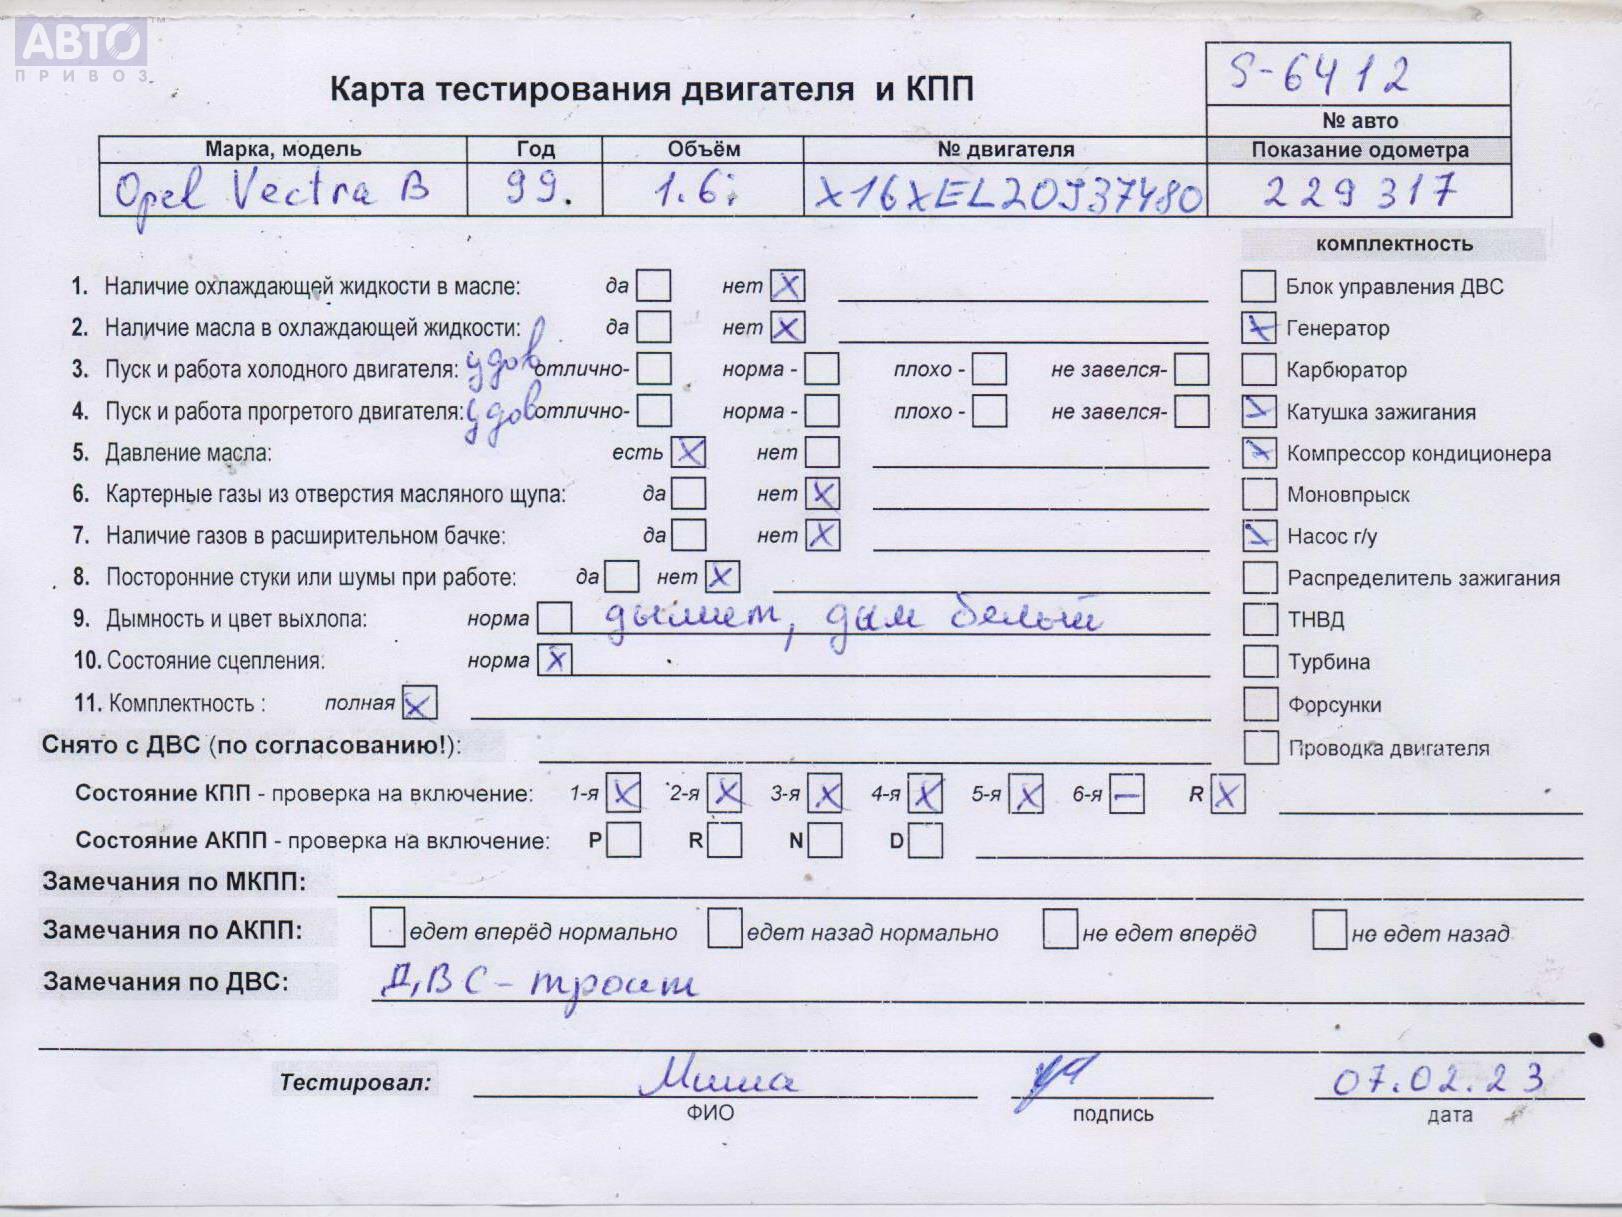 АВТО
ПРИВОЗ
Карта тестирования двигателя и КПП
S-6412
№ авто
Марка, модель Год Объём № двигателя Показание одометра
Opel Vectra B 99. 1.6i X16XEL20J937480 229317
комплектность
1. Наличие охлаждающей жидкости в масле: да нет X Блок управления ДВС
2. Наличие масла в охлаждающей жидкости: да нет X Генератор
3. Пуск и работа холодного двигателя: удов отлично- норма - плохо - не завелся- Карбюратор
4. Пуск и работа прогретого двигателя: удов отлично- норма - плохо - не завелся- Катушка зажигания
5. Давление масла: есть X нет Компрессор кондиционера
6. Картерные газы из отверстия масляного щупа: да нет X Моновпрыск
7. Наличие газов в расширительном бачке: да нет X Насос г/у
8. Посторонние стуки или шумы при работе: да нет X Распределитель зажигания
9. Дымность и цвет выхлопа: норма дымит, дым белый ТНВД
10. Состояние сцепления: норма X Турбина
11. Комплектность : полная X Форсунки
Снято с ДВС (по согласованию!): Проводка двигателя
Состояние КПП - проверка на включение: 1-я X 2-я X 3-я X 4-я X 5-я X 6-я — R X
Состояние АКПП - проверка на включение: P R N D
Замечания по МКПП:
Замечания по АКПП: едет вперёд нормально едет назад нормально не едет вперёд не едет назад
Замечания по ДВС: ДВС - троит
Тестировал: Миша 07.02.23
ФИО подпись дата